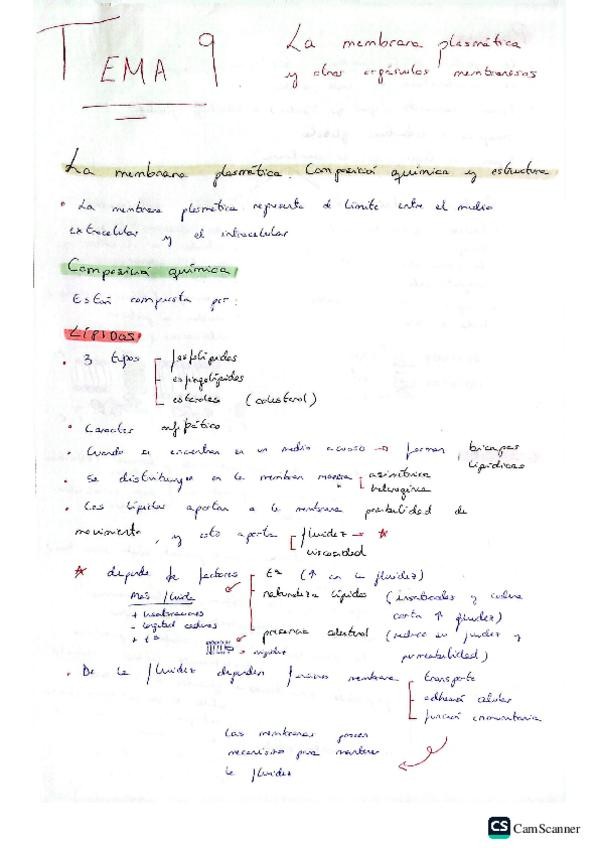 TEMA 9
La membrana plasmática
y otros orgánulos membranosos
La membrana plasmática. Composición química y estructura
• La membrana plasmática representa de límite entre el medio
extracelular y el intracelular
Composición química
Están compuesta por:
LÍPIDOS
• 3 tipos
fosfolípidos
esfingolípidos
esteroles (colesterol)
• Caracter anfipático
• Cuando se encuentran en un medio acuoso → forman bicapas
lipídicas
• Se distribuyen en la membran manera
asimétrica
heterogénea
• Los lípidos aportan a la membrana posibilidad de
movimiento, y esto aporta
fluidez → *
viscosidad
* depende de factores
Tª (↑ en la fluidez)
naturaleza lípidos (insaturados y cadena
corta ↑ fluidez)
presencia colesterol (reduce su fluidez y
permeabilidad)
Más fluida
+ insaturaciones
- longitud cadenas
+ tª
• De la fluidez dependen funciones membrana
transporte
adhesión celular
función inmunitaria
Las membranas poseen
mecanismos para mantener
la fluidez
CS CamScanner